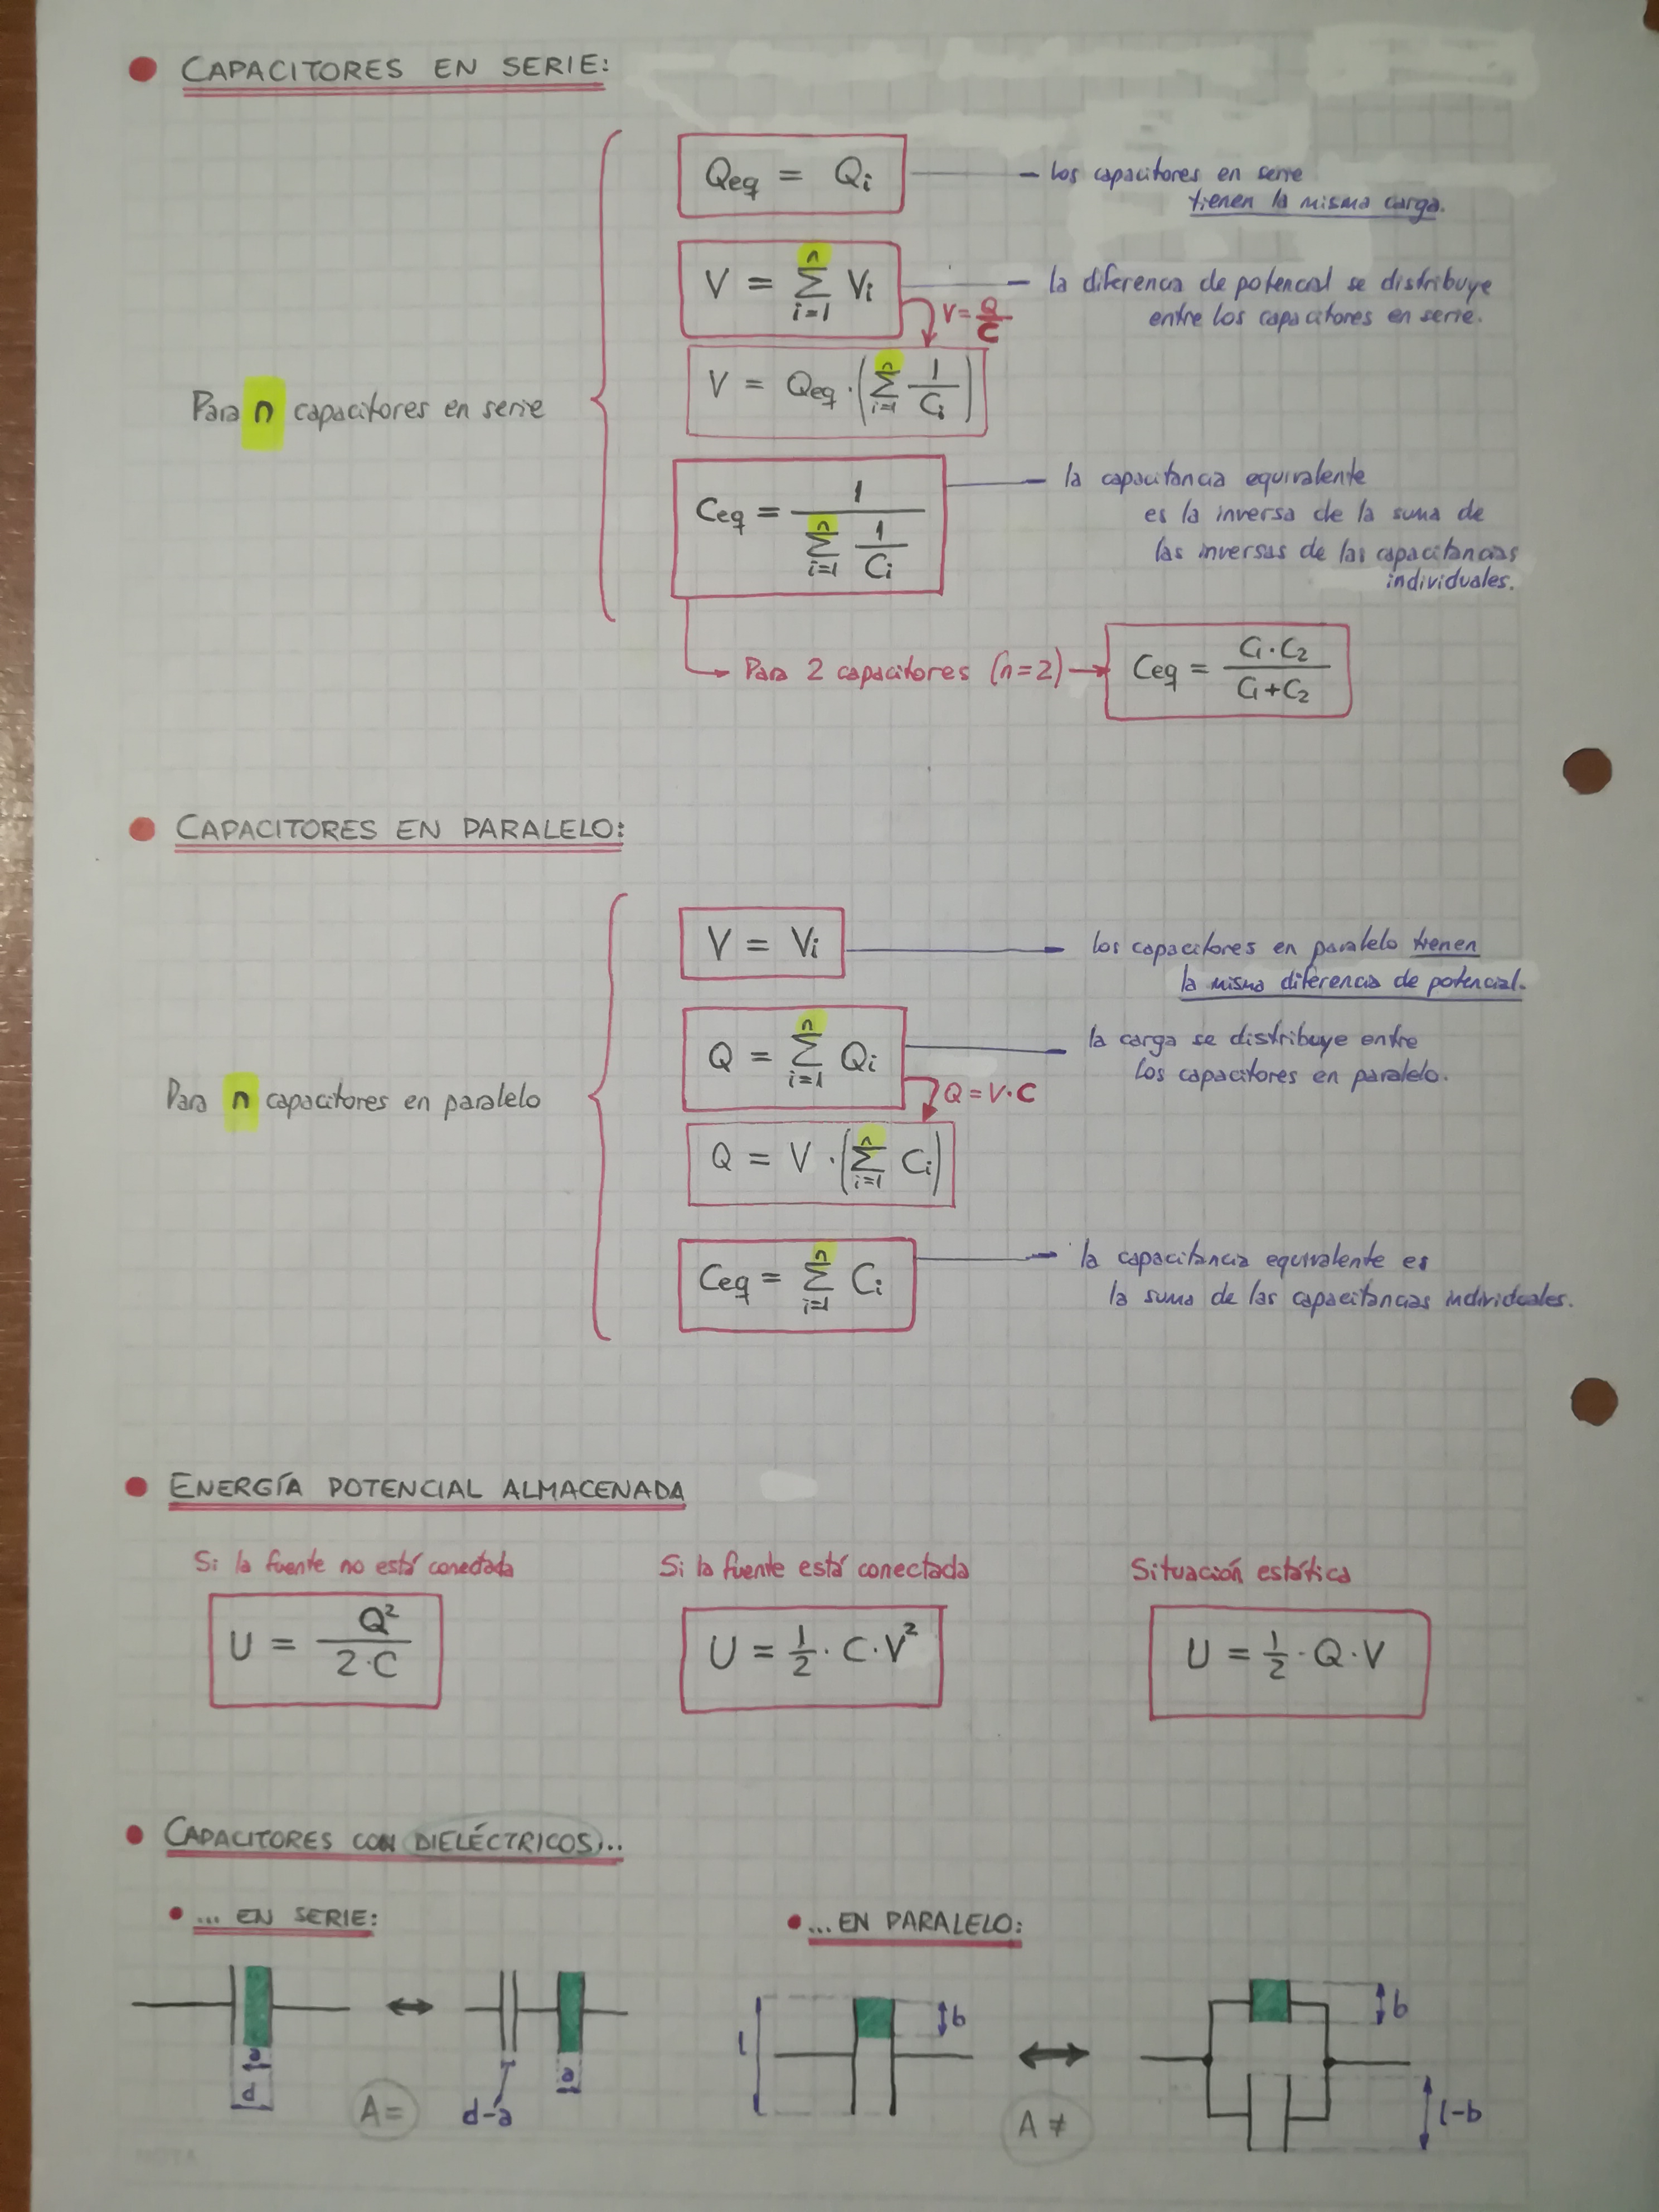 CAPACITORES EN SERIE:
Qeq = Qi
— los capacitores en serie
tienen la misma carga.
V = n Σ i=1 Vi
— la diferencia de potencial se distribuye
entre los capacitores en serie.
V = Q/C
Para n capacitores en serie
V = Qeq · (n Σ i=1 1/Ci)
Ceq = 1 / n Σ i=1 1/Ci
— la capacitancia equivalente
es la inversa de la suma de
las inversas de las capacitancias
individuales.
→ Para 2 capacitores (n=2) → Ceq = C1·C2 / C1+C2
CAPACITORES EN PARALELO:
V = Vi
— los capacitores en paralelo tienen
la misma diferencia de potencial.
Q = n Σ i=1 Qi
— la carga se distribuye entre
los capacitores en paralelo.
Q = V·C
Para n capacitores en paralelo
Q = V · (n Σ i=1 Ci)
Ceq = n Σ i=1 Ci
— la capacitancia equivalente es
la suma de las capacitancias individuales.
ENERGÍA POTENCIAL ALMACENADA
Si la fuente no está conectada
U = Q² / 2·C
Si la fuente está conectada
U = 1/2 · C·V²
Situación estática
U = 1/2 · Q·V
CAPACITORES CON DIELÉCTRICOS...
... EN SERIE:
a
d
A =
d-a
a
... EN PARALELO:
l
b
A ≠
b
l-b